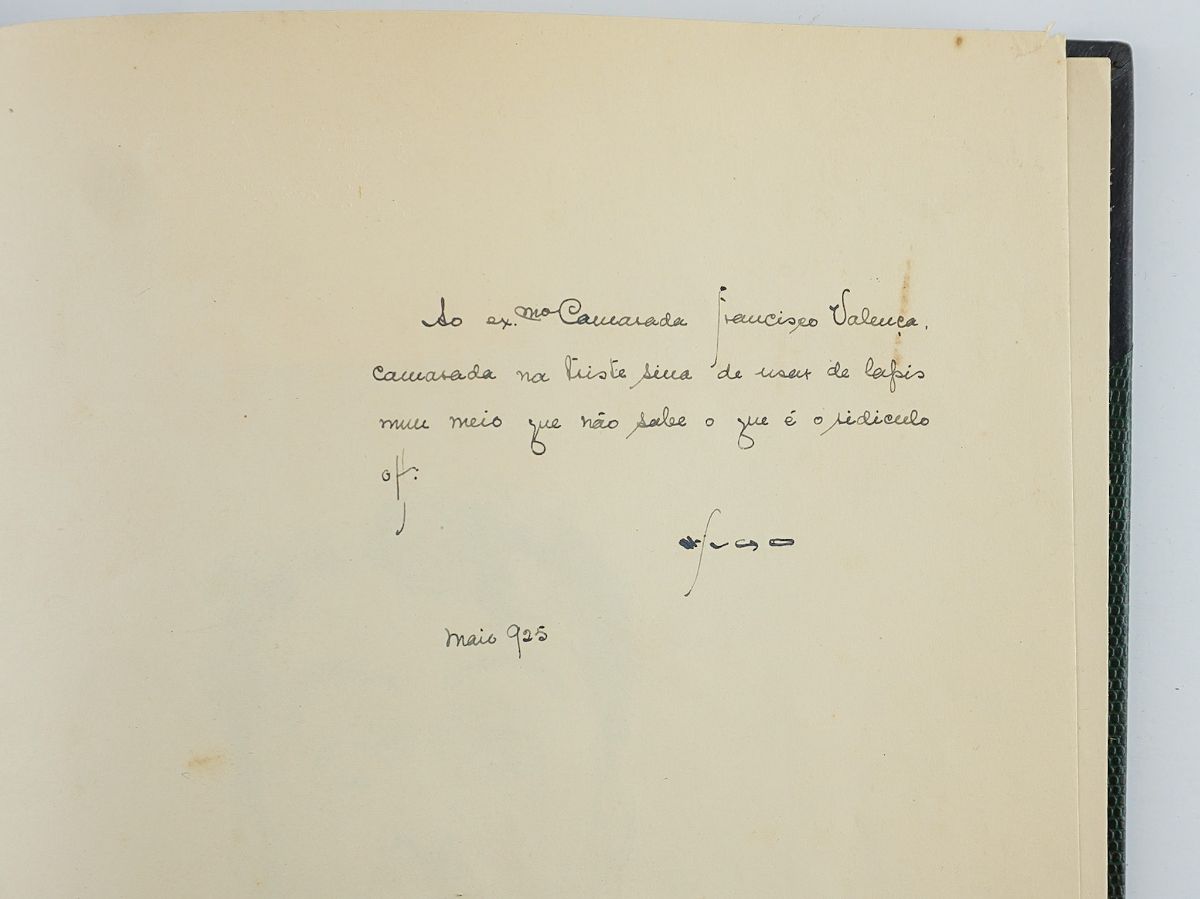 Ao ex.mo Camarada Francisco Valença,
camarada na triste sina de usar de lapis
num meio que não sabe o que é o ridiculo
of:
Maio 925